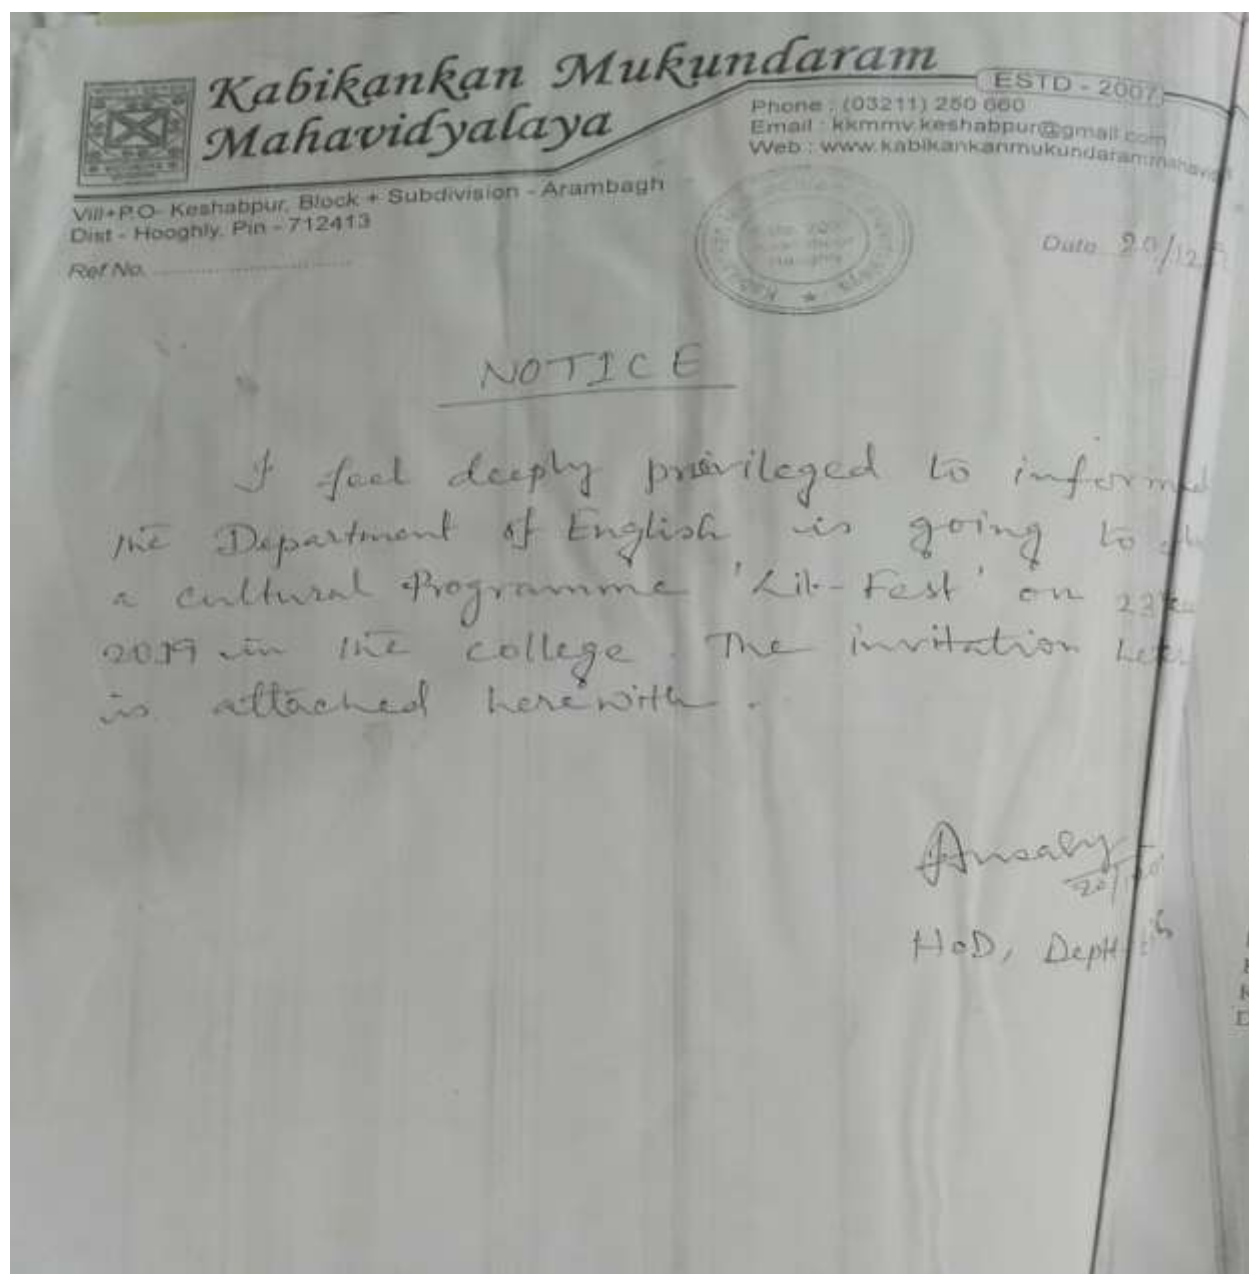 Kabikankan Mukundaram
Mahavidyalaya
ESTD - 2007
Phone : (03211) 250 660
Email : kkmmv.keshabpur@gmail.com
Web : www.kabikankanmukundarammahavid
Vill+P.O- Keshabpur, Block + Subdivision - Arambagh
Dist - Hooghly, Pin - 712413
Ref No.
Date 20/12
NOTICE
I feel deeply privileged to informed
the Department of English is going to
a cultural Programme 'Lit-Fest' on 23
2019 in the college. The invitation
is attached herewith.
20/12
HoD, Deptt